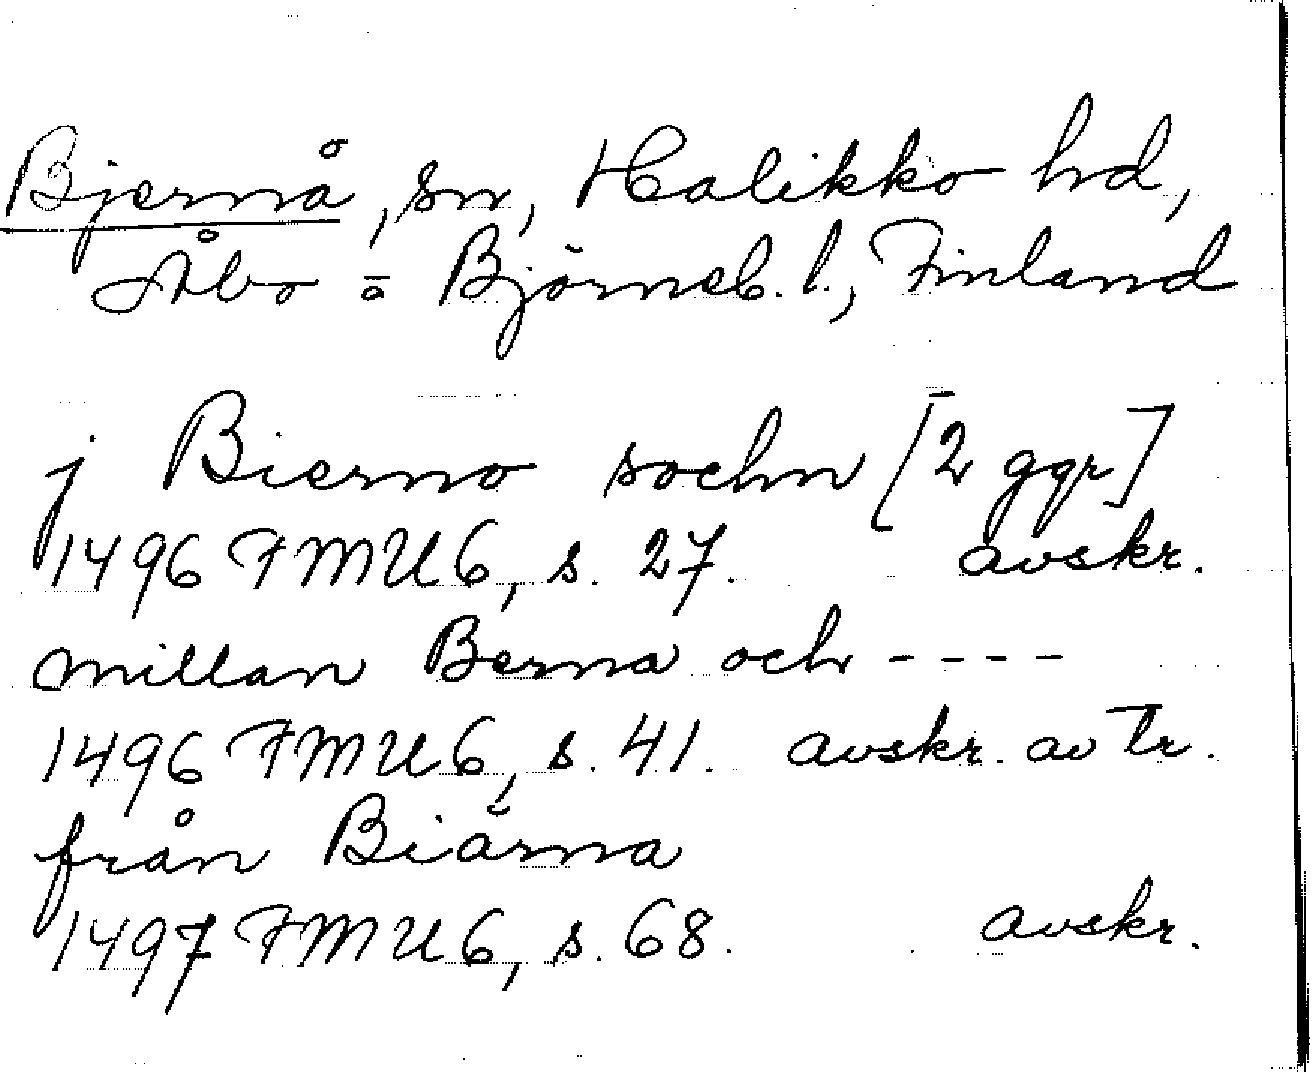 Bjernå, sn, Halikko hd,
Åbo o Björneb. l., Finland
j Bierno sochn [2 ggr]
1496 FMU 6, s. 27. avskr.
millan Berna och ----
1496 FMU 6, s. 41. avskr. av tr.
från Biärna
1497 FMU 6, s. 68. avskr.